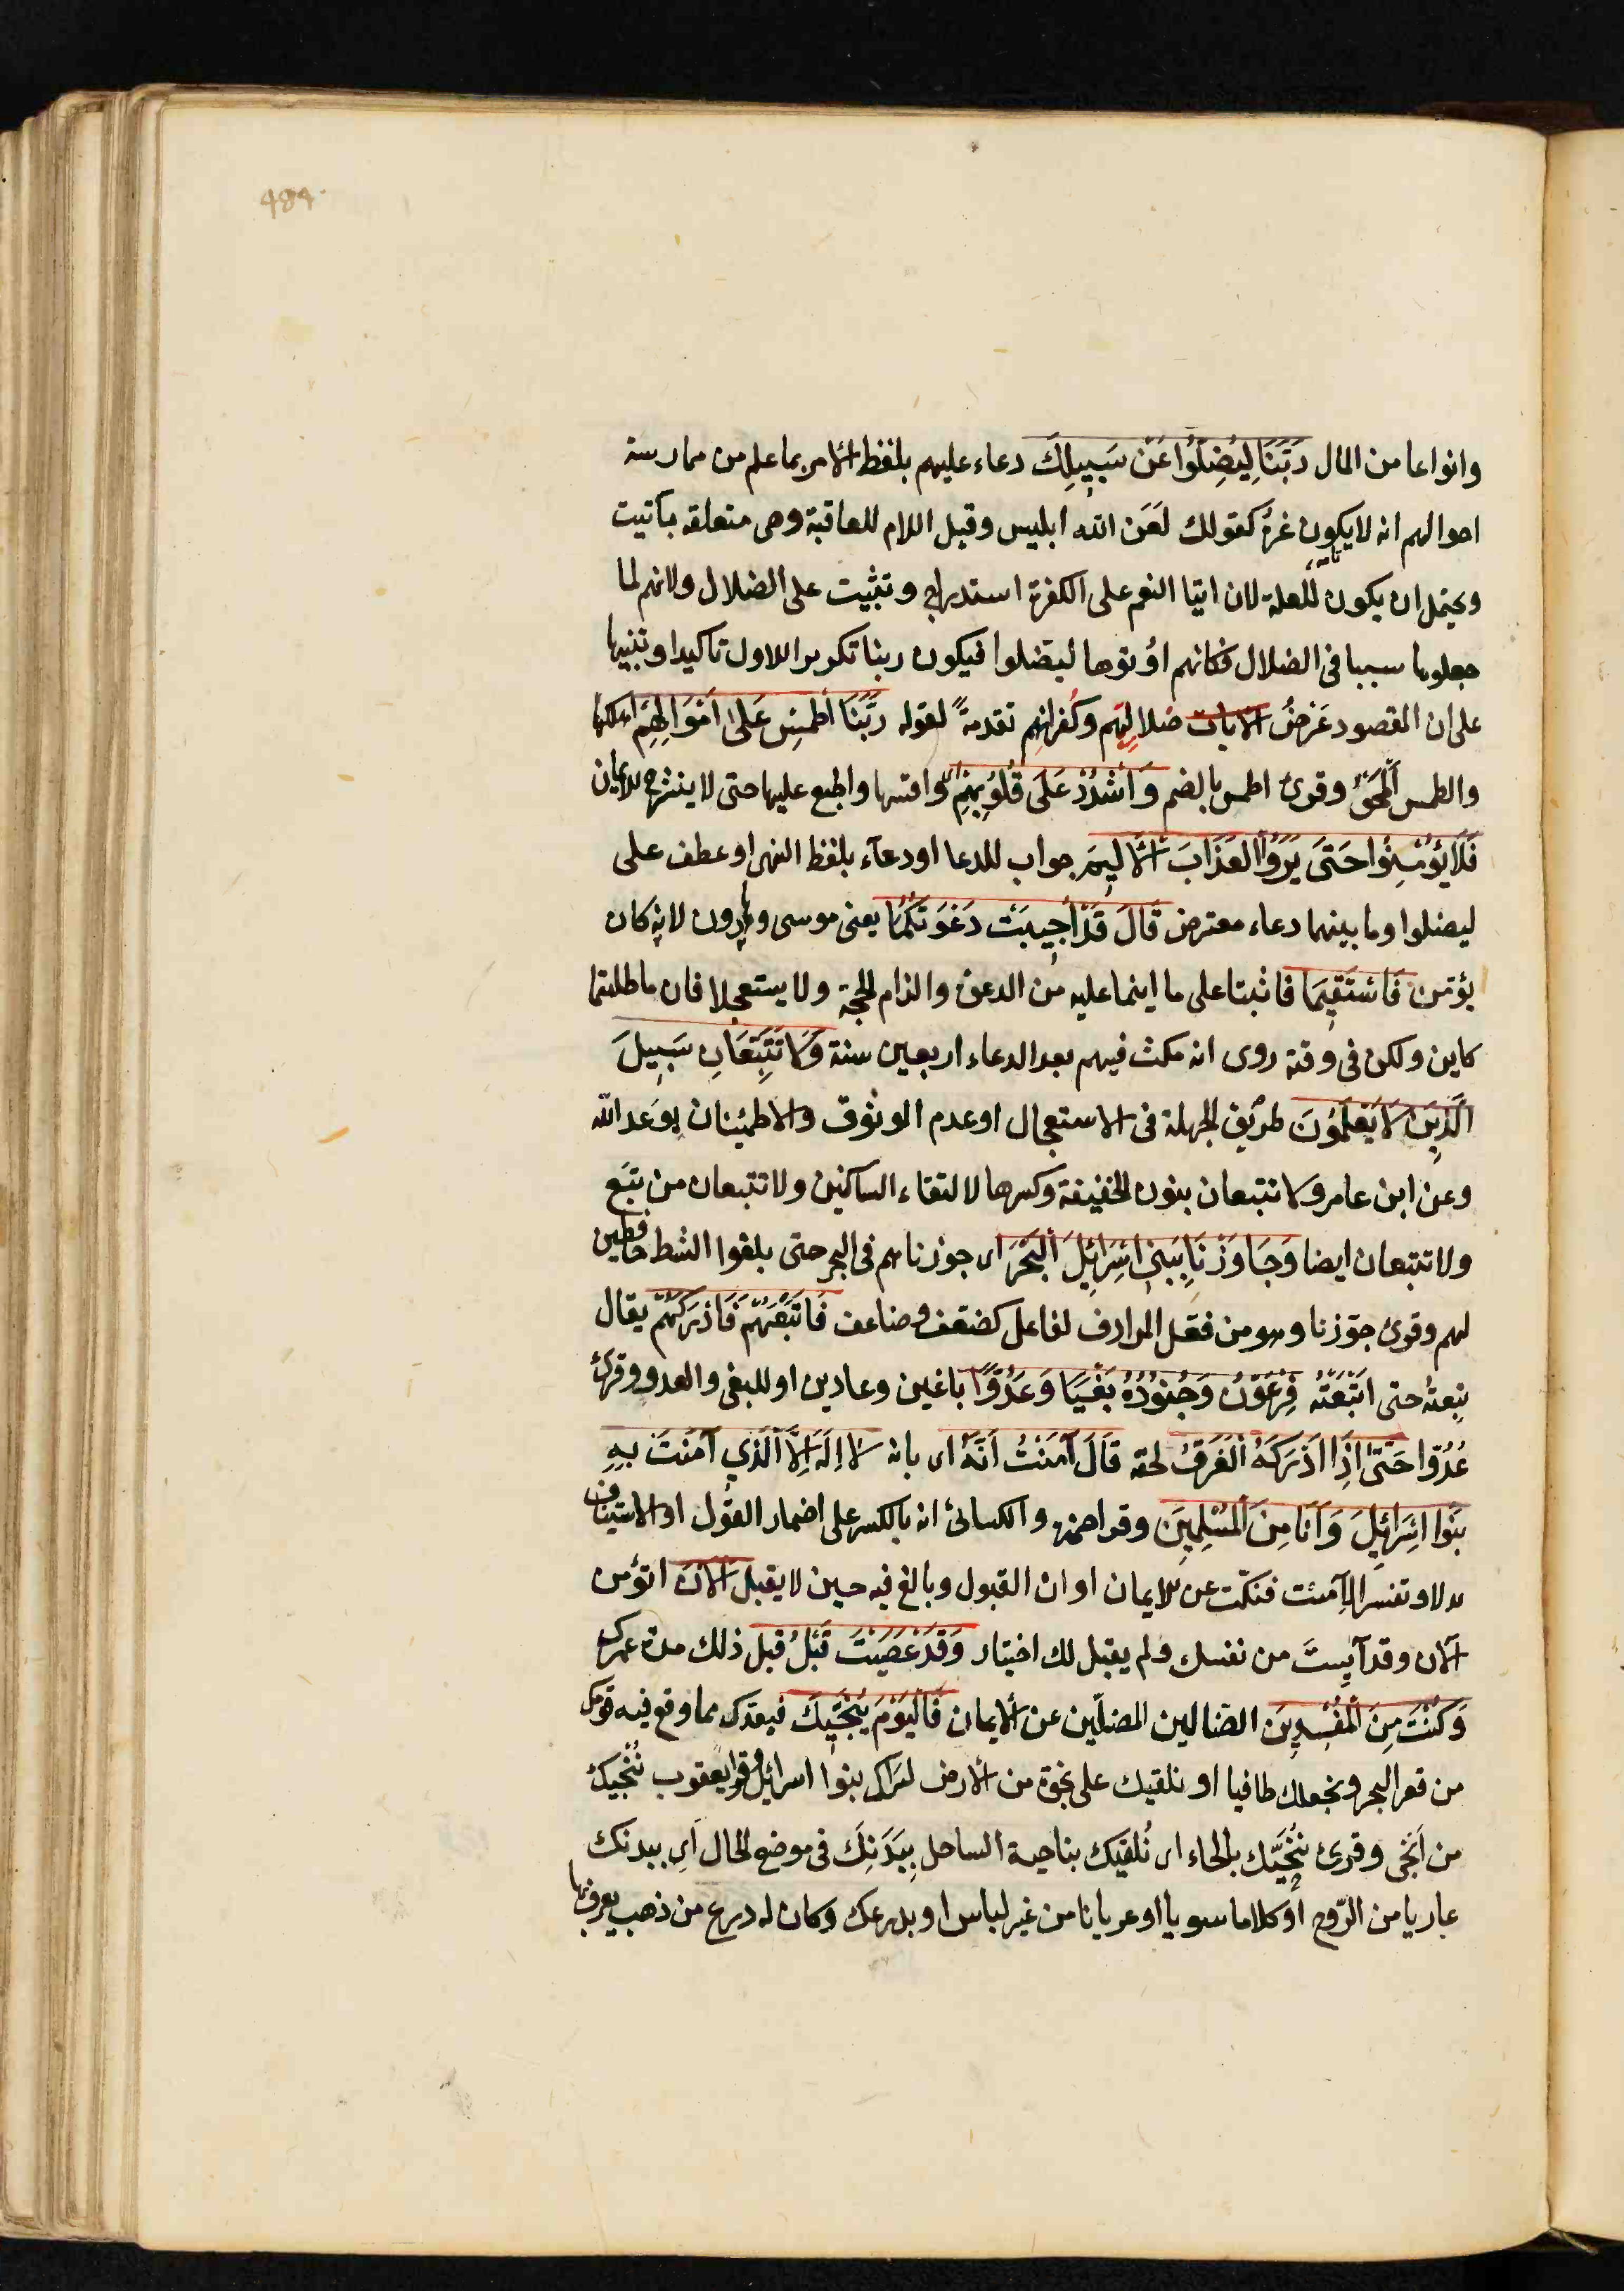 484
وانواعا من المال رَبَّنَا لِيُضِلُّوا عَنْ سَبِيلِكَ دعاء عليهم بلفظ الامر بما علم من ممارسة
احوالهم انه لا يكون غيره كقولك لَعَن الله ابليس وقيل اللام للعاقبة وهى متعلقه بآتيت
ويحتمل ان يكون للعلة لان ايتا النعم على الكفرة استدراج وتثبيت على الضلال ولانهم لما
جعلوها سببا فى الضلال فكانهم اوُتوها ليضلوا فيكون ربنا تكريرا للاول تاكيدا وتنبيها
على ان المقصود عَرْضُ ضلالِهم وكُفرانهِم تقدمةً لقوله رَبَّنَا اطْمِسْ عَلَىٰ أَمْوَالِهِمْ اهلكها
والطمس اَلْمحَقُ وقرئ اطمس بالضم وَاشْدُدْ عَلَى قُلُوبِهِمْ واقسها واطبع عليها حتى لا ينشرح للايمان
فَلَا يُؤْمِنُوا حَتَّى يَرَوُا الْعَذَابَ الْأَلِيمَ جواب للدعا او دعآء بلفظ النهى او عطف على
ليضلوا وما بينهما دعاء معترض قَالَ قَدْ أُجِيبَتْ دَعْوَتُكُمَا يعنى موسى وهارون لانه كان
يؤمّن فَاسْتَقِيمَا فاثبتا على ما اينما عليه من الدعوة والزام الحجة ولا يستعجلا فان ما طلبتما
كاين ولكن فى وقته روى انه مكث فيهم بعد الدعاء اربعين سنة وَلَا تَتَّبِعَانِ سَبِيلَ
الَّذِينَ لَا يَعْلَمُونَ طريق الجهلة فى الاستعجال او عدم الوثوق والاطمئنان بوَعد الله
وعن ابن عامر ولا تتبعان بنون الخفيفة وكسرها لالتقاء الساكنين ولا تتبعان من تبَع
ولا تتبعان ايضا وَجَاوَزْنَا بِبَنِي إِسْرَائِيلَ الْبَحْرَ اى جوزناهم فى البحر حتى بلغوا الشط حافظين
لهم وقرئ جوّزنا وهو من فعّل المرادف لفاعل كضعّف وضاعف فَاتْبَعَهُمْ فَاَدْرَكَهُمْ يقال
تبِعتهُ حتى اتْبَعْتُه فِرْعَوْنُ وَجُنُودُهُ بَغْيًا وَعَدْوًا باغين وعادين او للبغى والعدو وقرئ
عُدُوّا حَتَّىٰ إِذَا أَدْرَكَهُ الْغَرَقُ لحقه قَالَ آمَنْتُ أَنَّهُ اى بانه لَا إِلَهَ إِلَّا الَّذِي آمَنَتْ بِهِ
بَنُوا إِسْرَائِيلَ وَأَنَا مِنَ الْمُسْلِمِينَ وقرا حمزة والكسائئ انه بالكسر على اضمار القَول او الاستيناف
بدلا وتفسيرا لِآمنت فنكّب عن للايمان اوان القبول وبالغ فيه حين لا يقبل الآن اتؤمن
الآن وقد آيستَ من نفسك ولم يقبل لك اختيار وَقَدْ عَصَيْتَ قَبْلُ قبل ذلك مدة عمرك
وَكُنْتَ مِنَ الْمُفْسِدِينَ الضالين المضلّين عن الايمان فَالْيَوْمَ نُنَجِّيكَ فبعدك مما وقع فيه قومك
من قعر البحر ونجعلك طافيا او نلقيك على نجوة من الارض ليراك بنوا اسرائيل وقرا يعقوب نُنْجيكَ
من اَنْجَى وقرئ نُنَحِّيك بالحاء اى نُلقيك بناحية الساحل بِبَدَنِكَ فى موضع الحال اَى ببدنك
عاريا من الرّوح اَو كلاما سويا او عريانا من غير لباس او بدرعك وكان له درع من ذهب يعرف بها